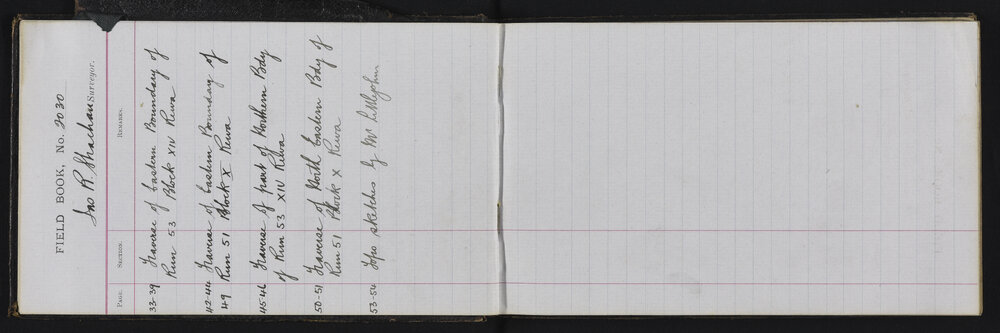 FIELD BOOK, No. 2030
Jno R Strachan Surveyor.
PAGE. SECTION. REMARKS.
33-39 Traverse of Eastern Boundary of
Run 53 Block XIV Rewa
42-44 Traverse of Eastern Boundary of
49 Run 51 Block X Rewa
45-46 Traverse of part of Northern Bdy
of Run 53 XIV Rewa
50-51 Traverse of North Eastern Bdy of
Run 51 Block X Rewa
53-54 Topo sketches by Mr Littlejohn